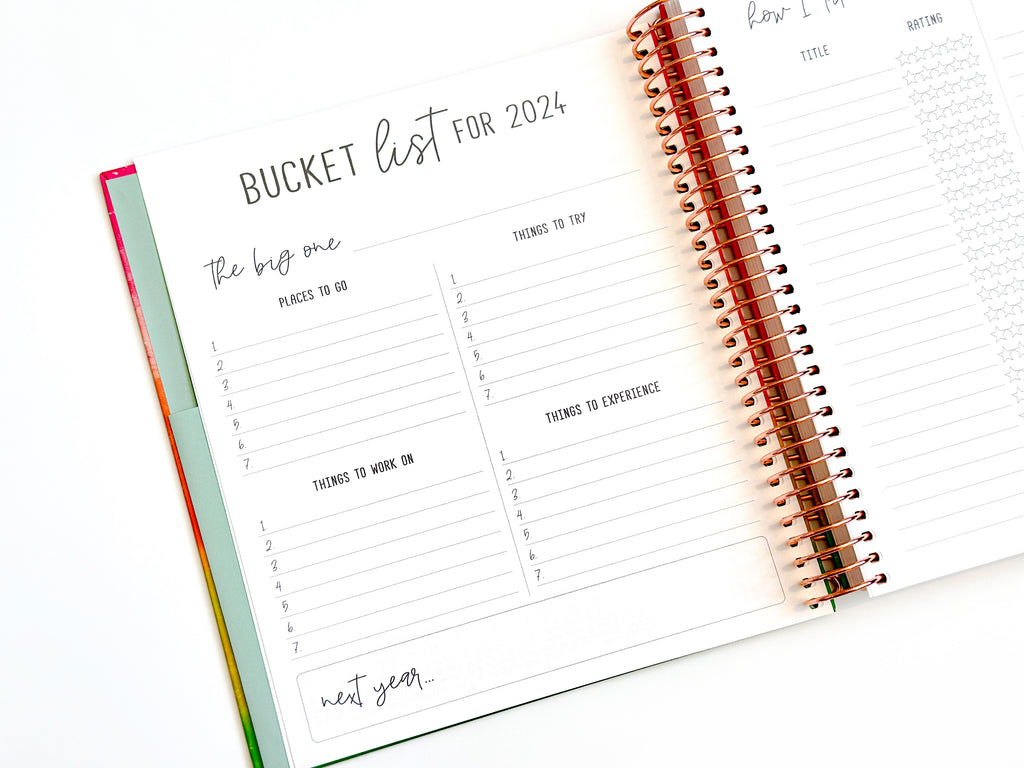 BUCKET list FOR 2024
the big one
PLACES TO GO
1.
2.
3.
4.
5.
6.
7.
THINGS TO WORK ON
1.
2.
3.
4.
5.
6.
7.
THINGS TO TRY
1.
2.
3.
4.
5.
6.
7.
THINGS TO EXPERIENCE
1.
2.
3.
4.
5.
6.
7.
next year...
how I
TITLE RATING